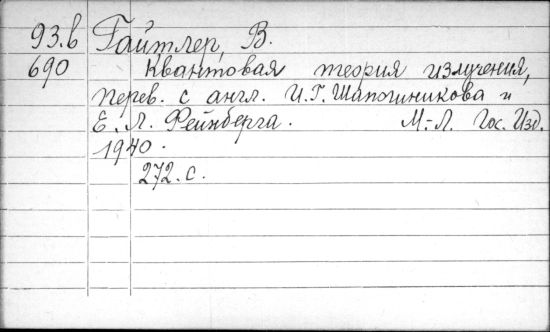 93.b Гайтлер, В.
690 Квантовая теория излучения,
перев. с англ. И.Г. Шапошникова и
Е. Л. Фейнберга. М.-Л. Гос. Изд.
1940.
272. с.